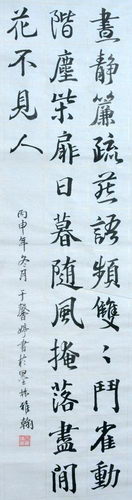 晝靜簾疏燕語頻雙〻鬥雀動
階塵柴扉日暮隨風掩落盡閒
花不見人
丙申年冬月于馨婷書於墨林雅翰